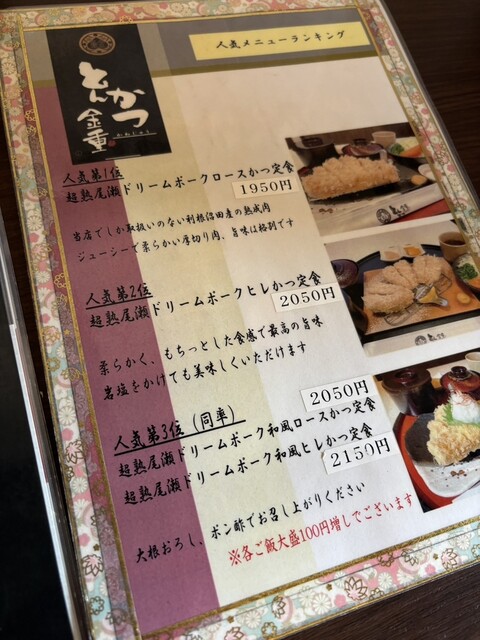 人気メニューランキング
とんかつ
金重
かねじゅう
人気第1位
超熟尾瀬ドリームポークロースかつ定食
1950円
当店でしか取扱いのない利根沼田産の熟成肉
ジューシーで柔らかい厚切り肉、旨味は格別です
人気第2位
超熟尾瀬ドリームポークヒレかつ定食
2050円
柔らかく、もちっとした食感で最高の旨味
岩塩をかけても美味しくいただけます
人気第3位(同率)
2050円
超熟尾瀬ドリームポーク和風ロースかつ定食
超熟尾瀬ドリームポーク和風ヒレかつ定食
2150円
大根おろし、ポン酢でお召し上がりください
※各ご飯大盛100円増しでございます